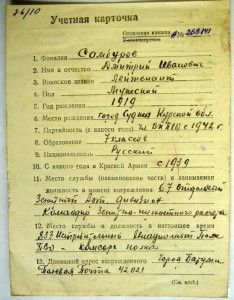 26/10
Учетная карточка
№ 268141
1. Фамилия Самбуров
2. Имя и отчество Дмитрий Иванович
3. Воинское звание Лейтенант
4. Пол Мужской
5. Год рождения 1919
6. Место рождения город Суджа Курской обл.
7. Партийность (с какого года) чл. ВКП(б) с 1942 г.
8. Образование 7 классов
9. Национальность Русский
10. С какого года в Красной Армии с 1939
11. Место службы (наименование части) и занимаемая
должность в момент награждения 67 Отдельный
Зенитный Арт. Дивизион
Командир Зенитно-пулеметного расчета
12. Место службы и должность в настоящее время
833 Истребительный Авиационный Полк
ПВО - комсорг полка
13. Домашний адрес награжденного Город Батуми
Полевая Почта 42021
(См. на об.)